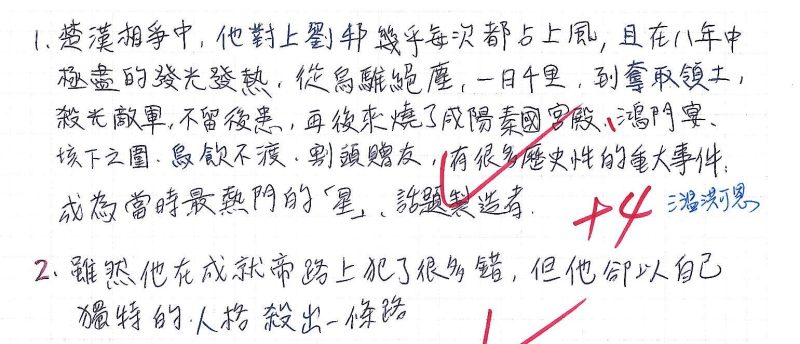 1. 楚漢相爭中，他對上劉邦幾乎每次都占上風，且在八年中
極盡的發光發熱，從烏騅絕塵，一日千里，到奪取領土，
殺光敵軍，不留後患，再後來燒了咸陽秦國宮殿、鴻門宴、
垓下之圍、烏飲不渡、割頭贈友，有很多歷史性的重大事件，
成為當時最熱門的「星」、話題製造者.
+4 三溫洪可恩
2. 雖然他在成就帝路上犯了很多錯，但他卻以自己
獨特的人格殺出一條路